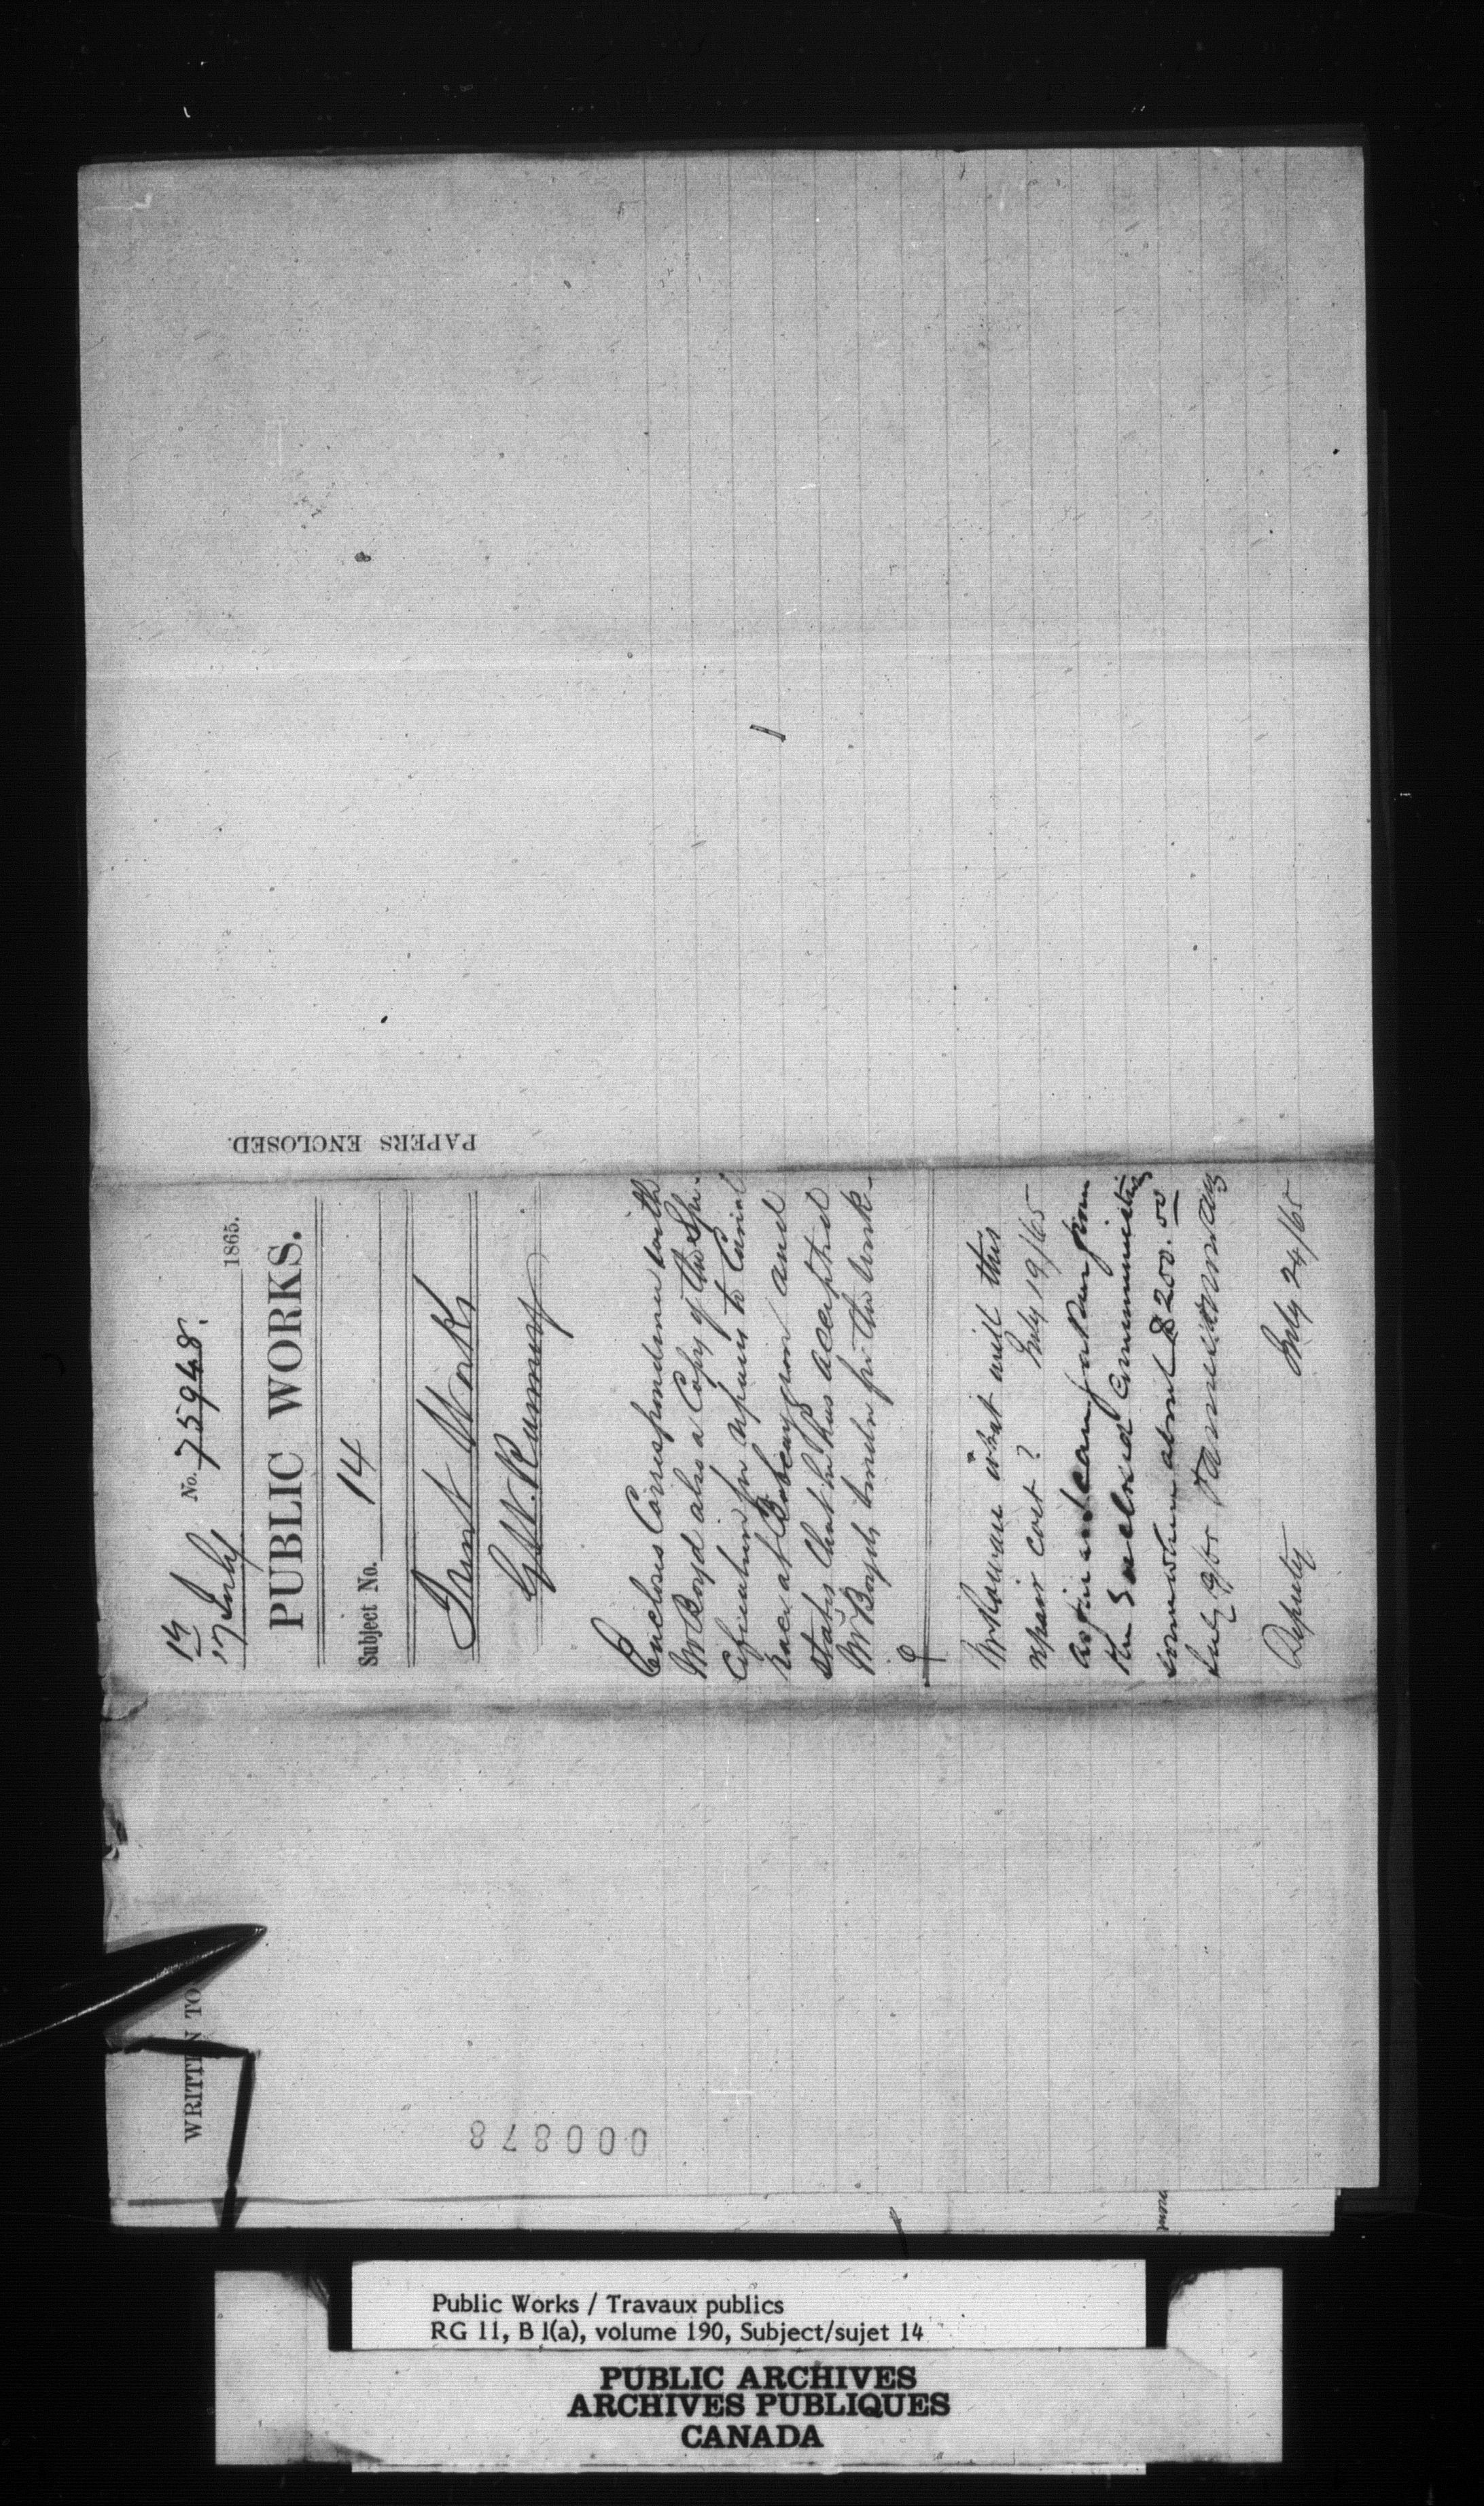 14
17 July
No. 75948.
1865.
PUBLIC WORKS.
Subject No. 14
Trent Works
G. W. Ranney
Encloses Correspondence with
Mr Boyd also a Copy of the Spe-
cification for repairs to Canal
Race at Bobcaygeon and
states that he has accepted
Mr Boyd's tender for the work-
Mr Rowan what will this
repair cost? July 19/65
As far as I can gather from
the Enclosed Communication
somewhere about $200.00
July 24/65
Deputy
PAPERS ENCLOSED.
WRITTEN TO
000878
Public Works / Travaux publics
RG 11, B 1(a), volume 190, Subject/sujet 14
PUBLIC ARCHIVES
ARCHIVES PUBLIQUES
CANADA